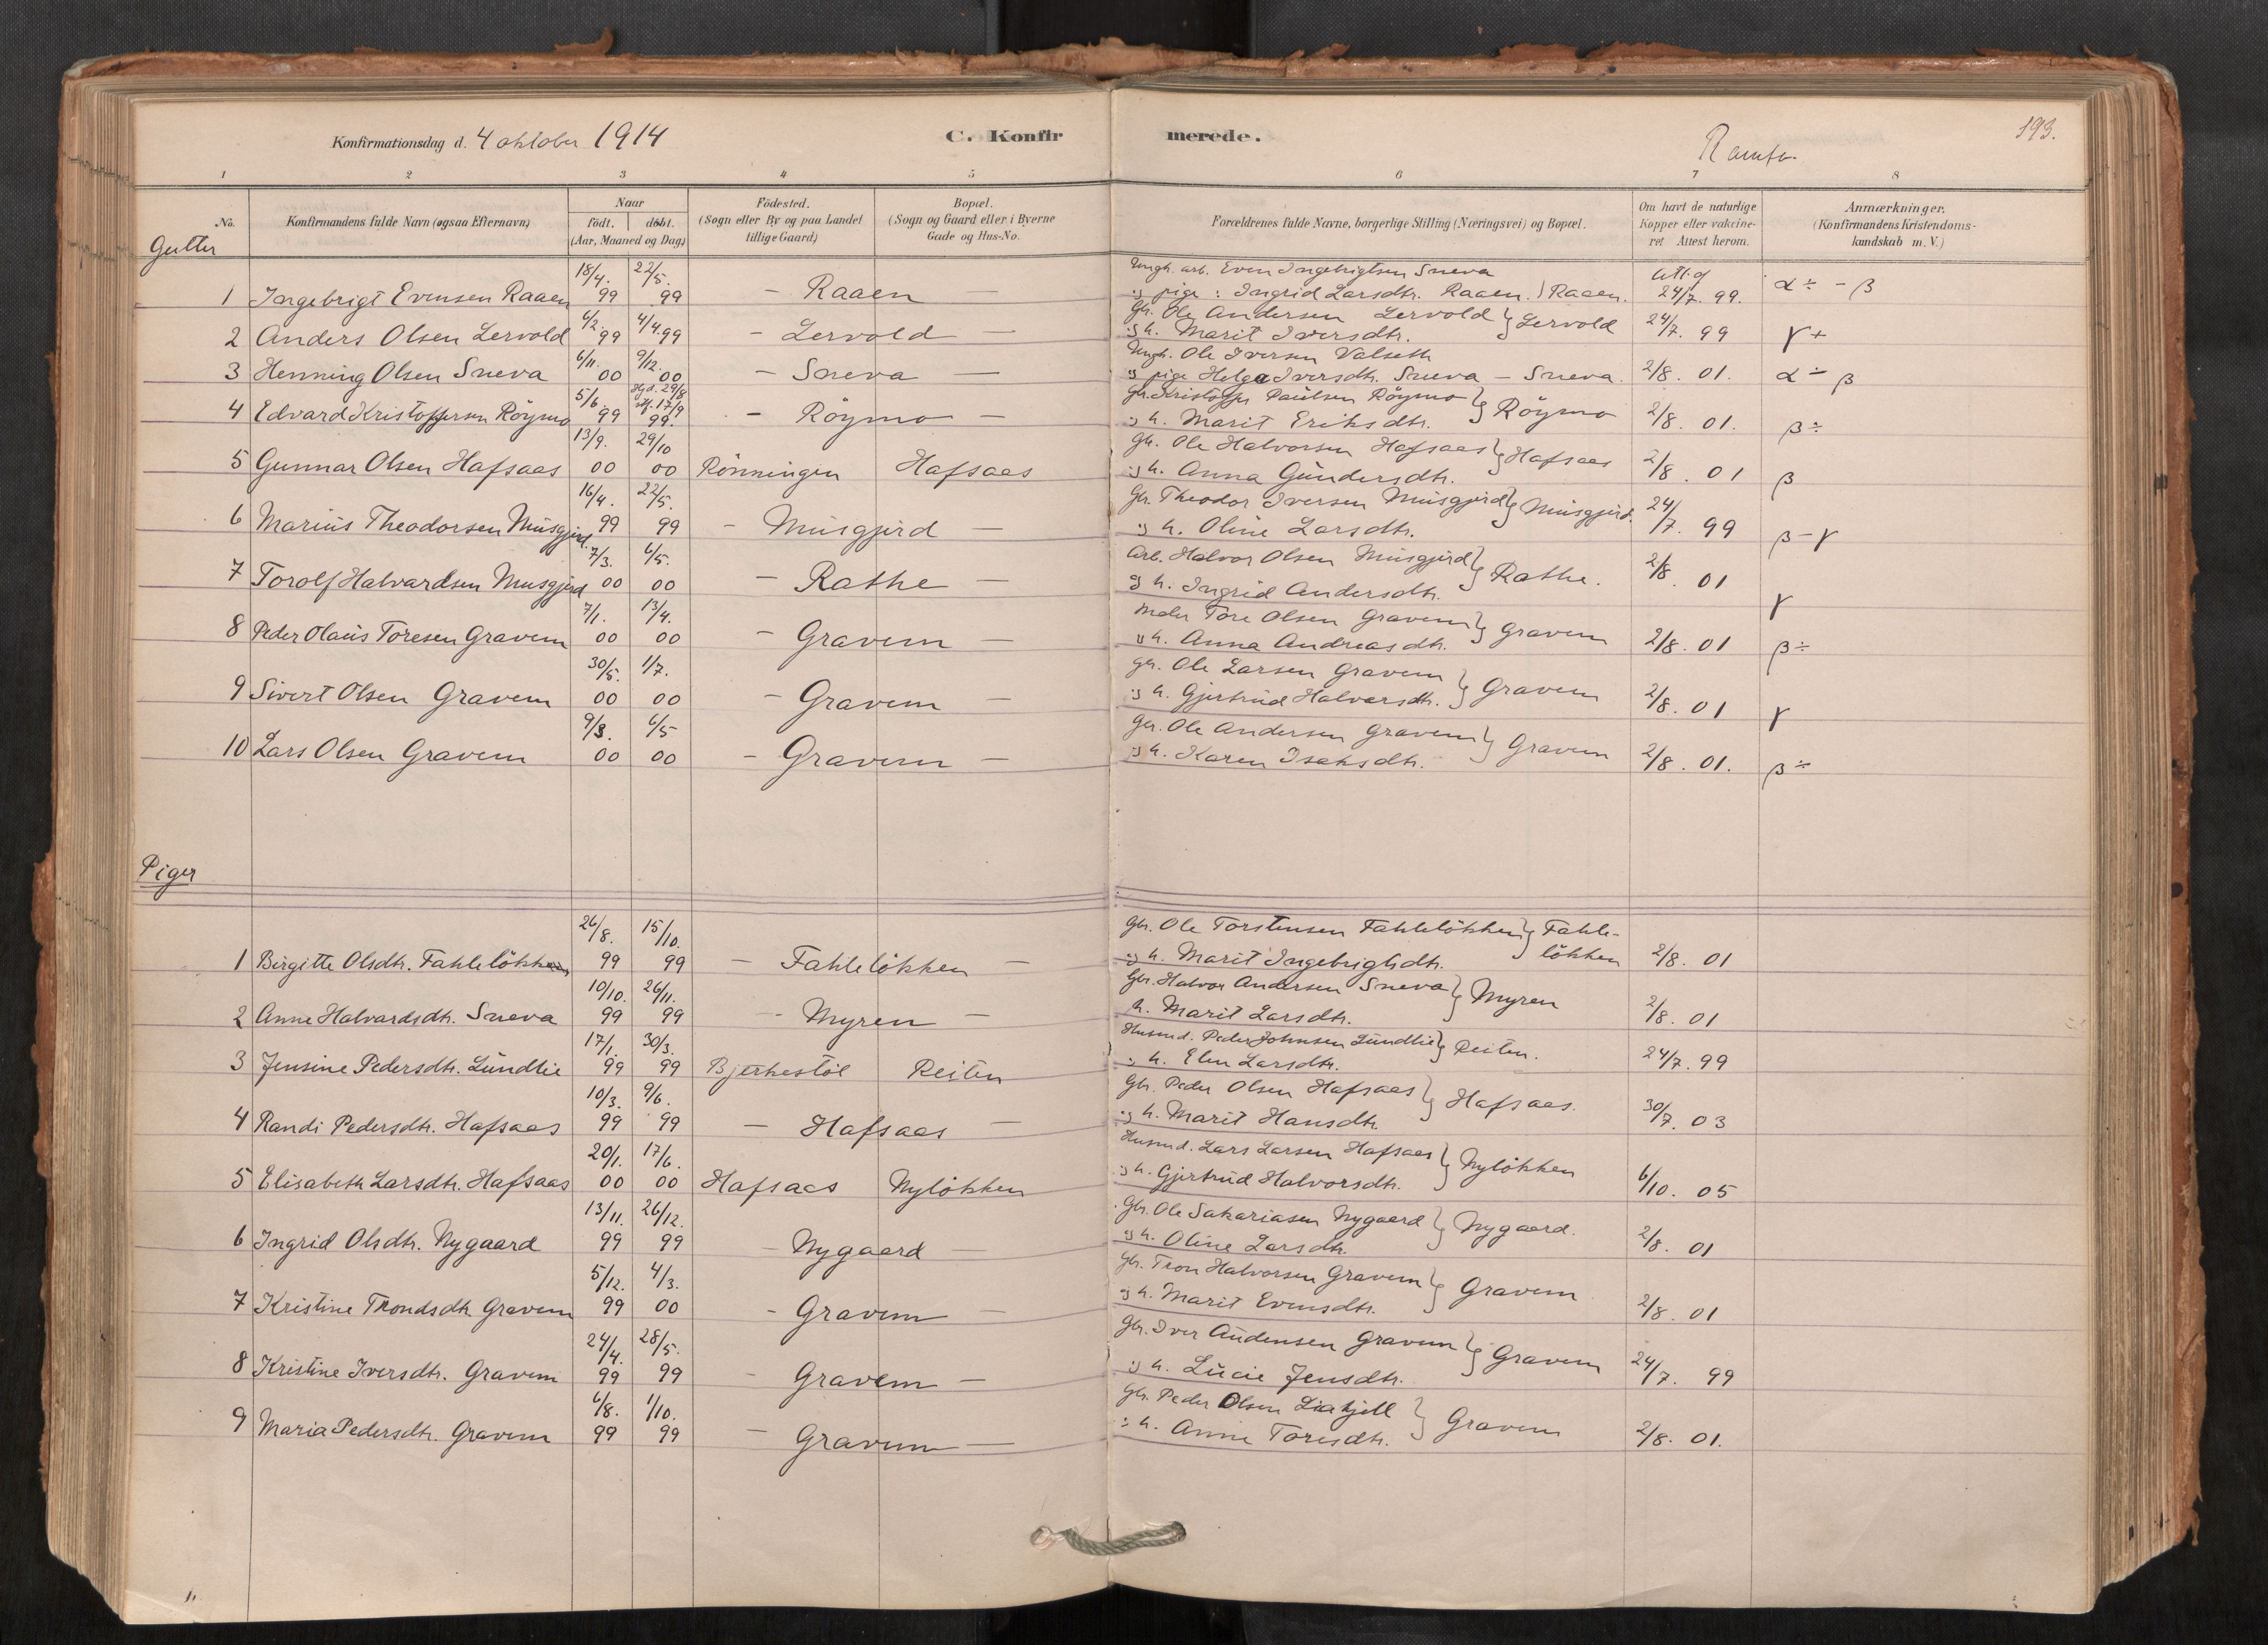 Konfirmationsdag d. 4 oktober 1914 C. Konfirmerede. 193.
1 2 3 4 5 6 7 8
No. Konfirmandens fulde Navn (ogsaa Efternavn) Naar født. døbt. (Aar, Maaned og Dag) Födested. (Sogn eller By og paa Landet tillige Gaard) Bopæl. (Sogn og Gaard eller i Byerne Gade og Hus-No. Forældrenes fulde Navne, borgerlige Stilling (Næringsvei) og Bopæl. Om havt de naturlige Kopper eller vakcineret Attest herom. Anmærkninger. (Konfirmandens Kristendomskundskab m. V.)
Gutter
1 Ingebrigt Evensen Raaen 18/4. 99 22/5. 99 – Raaen – Ungk. arb. Even Ingebrigtsen Sneva
og pige : Ingrid Larsdtr. Raaen. } Raaen. Att. of 24/7. 99. α÷ - β
2 Anders Olsen Lervold 6/2. 99 4/4. 99 – Lervold – Gbr. Ole Andersen Lervold
og h. Marit Iversdtr. } Lervold 24/7. 99 γ+
3 Henning Olsen Sneva 6/11. 00 9/12. 00 – Sneva – Ungk. Ole Iversen Valseth
og pige Helga Iversdtr. Sneva – Sneva. 2/8. 01. α ÷ β
4 Edvard Kristoffersen Röymo 5/6. 99 Hjd. 29/8 stf. 17/9 99. – Röymo – gbr. Kristoffer Paulsen Röymo
og h. Marit Eriksdtr. } Röymo 2/8. 01. β÷
5 Gunnar Olsen Hafsaas 13/9. 00 29/10 00 Rönningen Hafsaas gbr. Ole Halvorsen Hafsaas
og h. Anna Gundersdtr. } Hafsaas 2/8. 01 β
6 Marius Theodorsen Musgjerd. 16/4. 99 22/5. 99 – Musgjerd – Gbr. Theodor Iversen Musgjerd
og h. Oline Larsdtr. } Musgjerd. 24/7. 99 β-γ
7 Torolf Halvardsen Musgjerd 7/3. 00 6/5. 00 – Rathe – Arb. Halvor Olsen Musgjerd
og h. Ingrid Andersdtr. } Rathe. 2/8. 01 γ
8 Peder Olaus Toresen Gravem 7/1. 00 13/4. 00 – Gravem – Maler Tore Olsen Gravem
og h. Anna Andreasdtr. } Gravem 2/8. 01 β÷
9 Sivert Olsen Gravem 30/5. 00 1/7. 00 – Gravem – gbr. Ole Larsen Gravem
og h. Gjertrud Halvorsdtr. } Gravem 2/8. 01 γ
10 Lars Olsen Gravem 9/3. 00 6/5 00 – Gravem – Gbr. Ole Andersen Gravem
og h. Karen Isaksdtr. } Gravem 2/8. 01. β÷
Piger
1 Birgitte Olsdtr. Fahleløkken 26/8. 99 15/10. 99 – Fahlelökken – Gbr. Ole Torstensen Fahlelökken
og h. Marit Ingebrigtsdtr. } Fahlelökken 2/8. 01
2 Anne Halvardsdtr. Sneva 10/10. 99 26/11. 99 – Myren – Gbr. Halvor Andersen Sneva
h. Marit Larsdtr. } Myren 2/8. 01
3 Jensine Pedersdtr. Lundlie 17/1. 99 30/3. 99 Bjerkestöl Reiten Husmd. Peder Johnsen Lundlie
og h. Elen Larsdtr. } Reiten. 24/7. 99
4 Randi Pedersdtr. Hafsaas 10/3. 99 9/6. 99 – Hafsaas – Gbr. Peder Olsen Hafsaas
og h. Marit Hansdtr } Hafsaas. 30/7. 03
5 Elisabeth Larsdtr. Hafsaas 20/1. 00 17/6. 00 Hafsaas Nylökken Husmd. Lars Larsen Hafsaas
og h. Gjertrud Halvorsdtr. } Nylökken 6/10. 05
6 Ingrid Olsdtr. Nygaard 13/11. 99 26/12. 99 – Nygaard Gbr. Ole Sakariasen Nygaard
og h. Oline Larsdtr. } Nygaard. 2/8. 01
7 Kristine Trondsdtr. Gravem 5/12. 99 4/3. 00 – Gravem – Gbr. Tron Halvorsen Gravem
og h. Marit Evensdtr. } Gravem 2/8. 01
8 Kristine Iversdtr. Gravem 24/4. 99 28/5. 99 – Gravem – Gbr. Iver Audensen Gravem
og h. Lucie Jensdtr. } Gravem 24/7. 99
9 Maria Pedersdtr. Gravem 6/8. 99 1/10. 99 – Gravem – Gbr. Peder Olsen Liahjell
og h. Anne Toresdtr. } Gravem 2/8. 01.